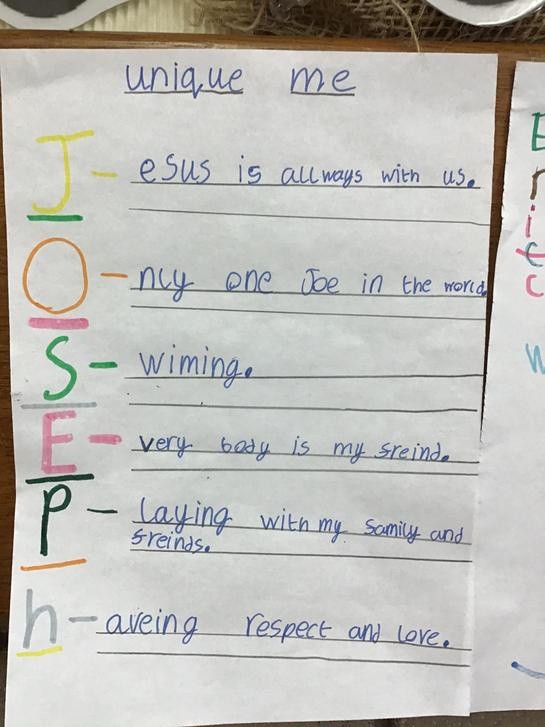 unique me
J- esus is allways with us.
O- nly one Joe in the world.
S- wiming.
E- very body is my sreind.
P- laying with my samily and
sreinds.
h- aveing respect and love.
E
r
i
c
w